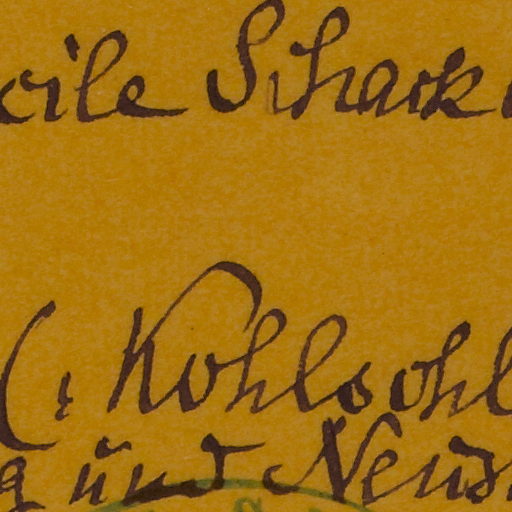 cile Schack
(: Kohlsohl
g und Neus